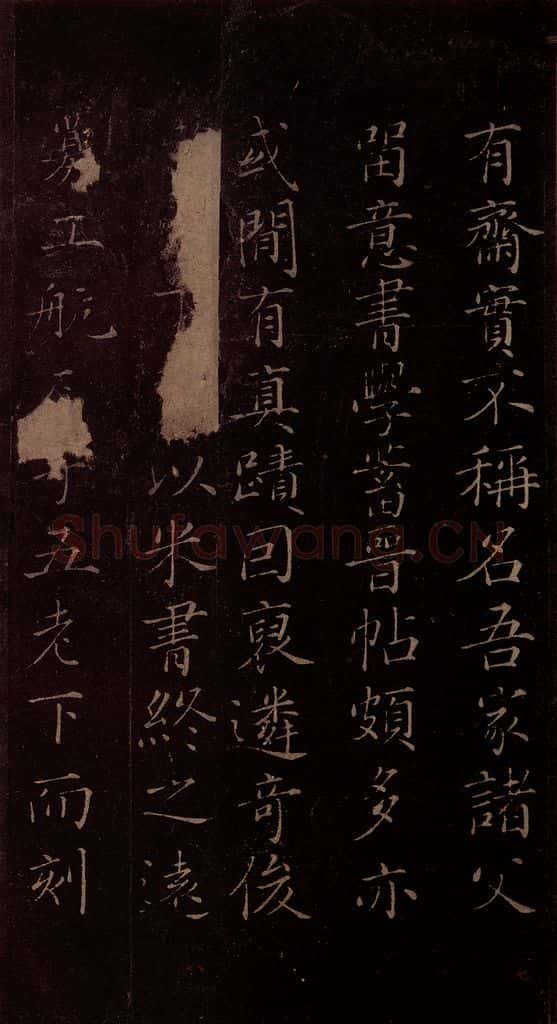 有齋實不稱名吾家諸父
留意書學蓄晉帖頗多亦
或間有真蹟因裒遴奇俊
以米書終之遠
募工 五老下而刻
Shufawang.CN